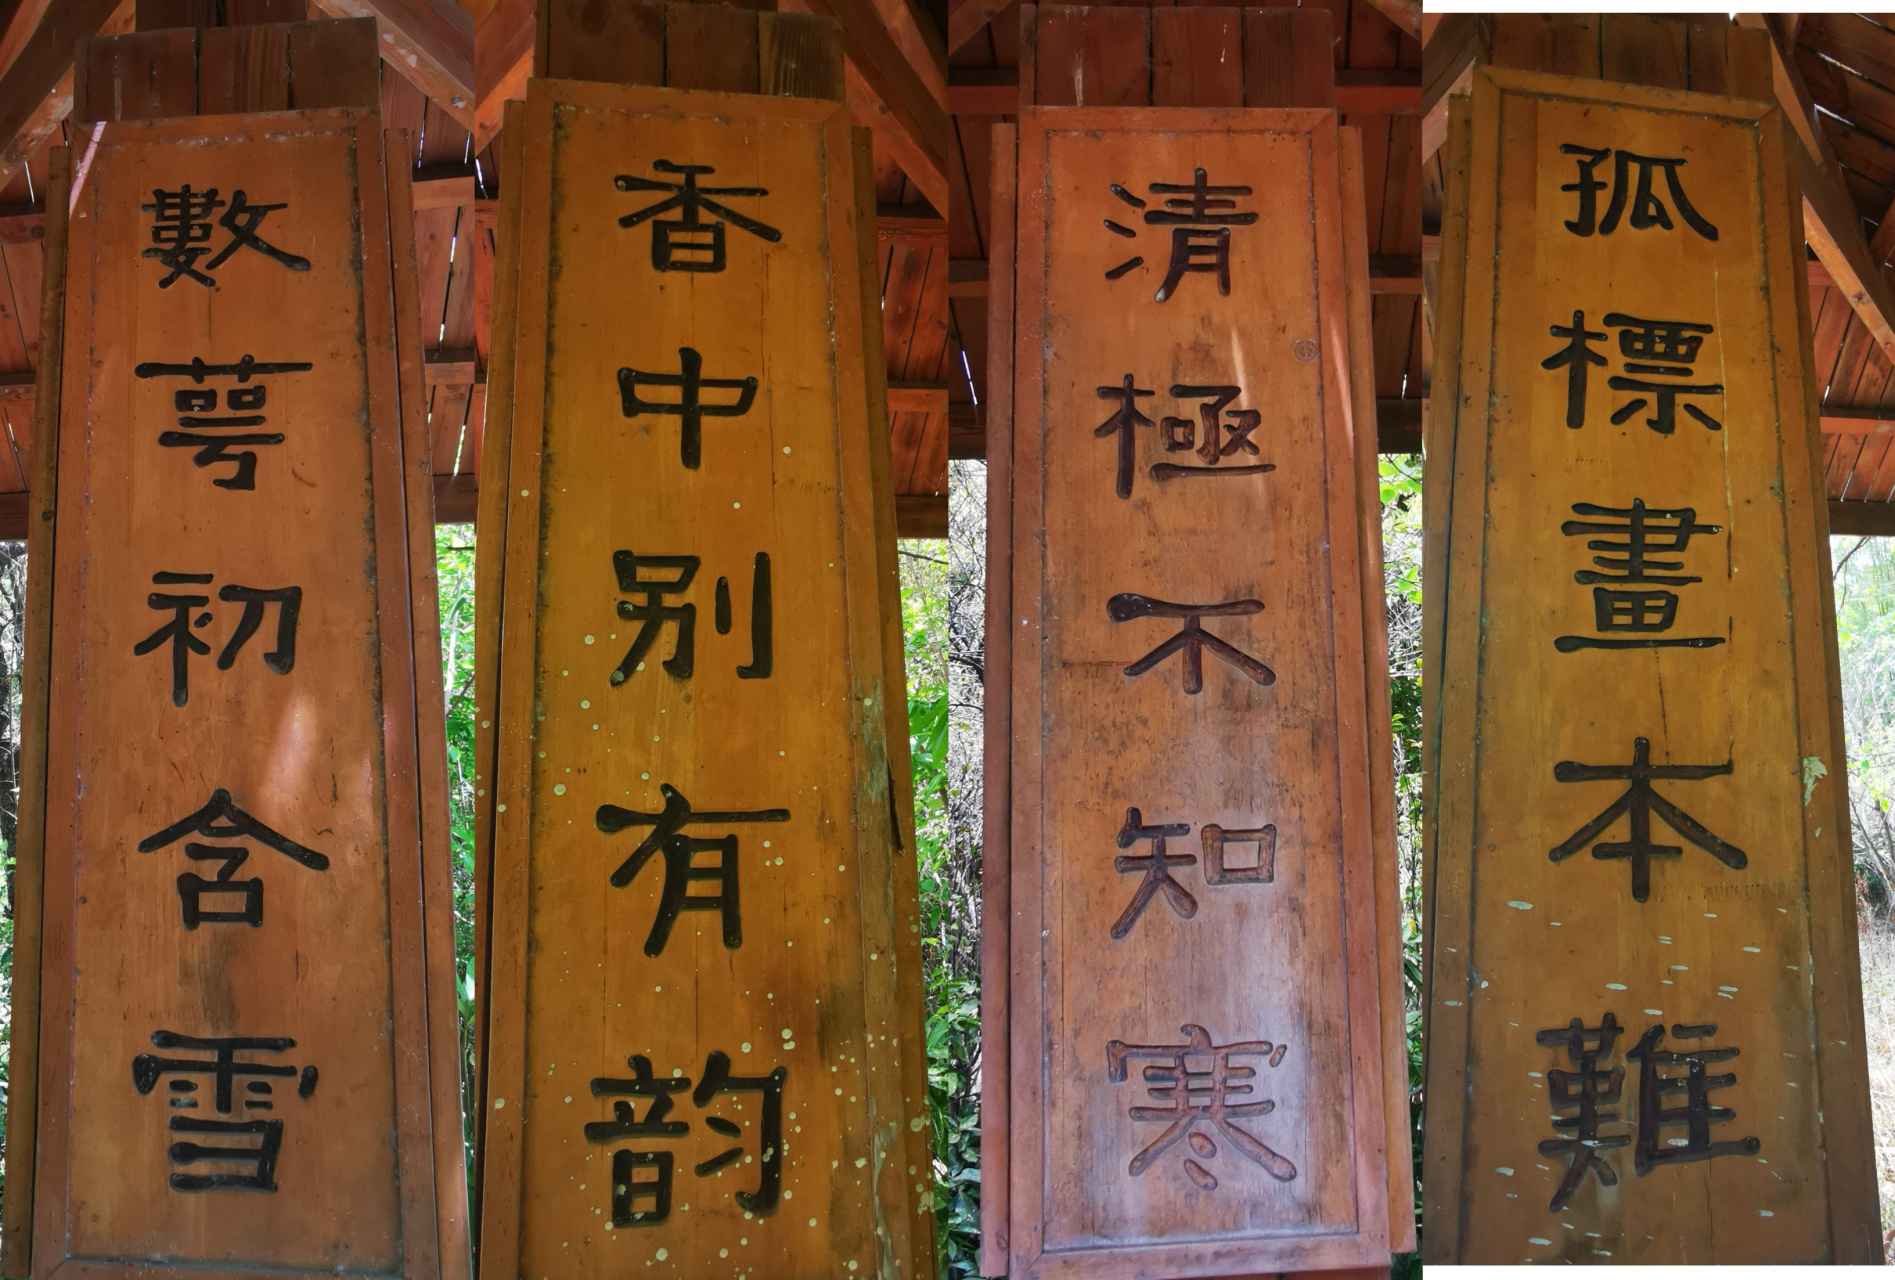 數萼初含雪
香中别有韵
清極不知寒
孤標畫本難